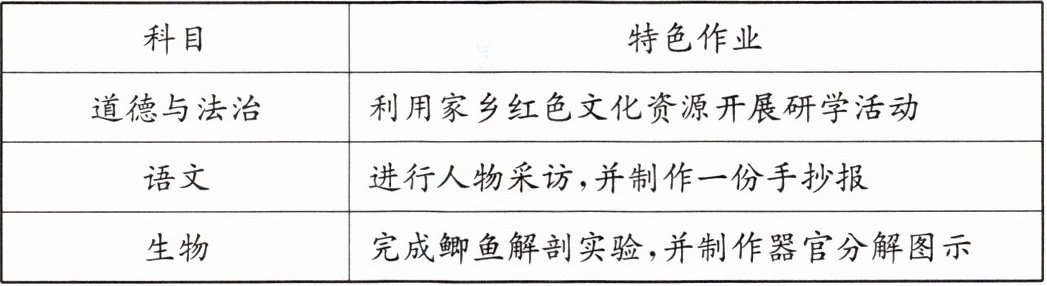 科目 特色作业
道德与法治 利用家乡红色文化资源开展研学活动
语文 进行人物采访,并制作一份手抄报
生物 完成鲫鱼解剖实验,并制作器官分解图示